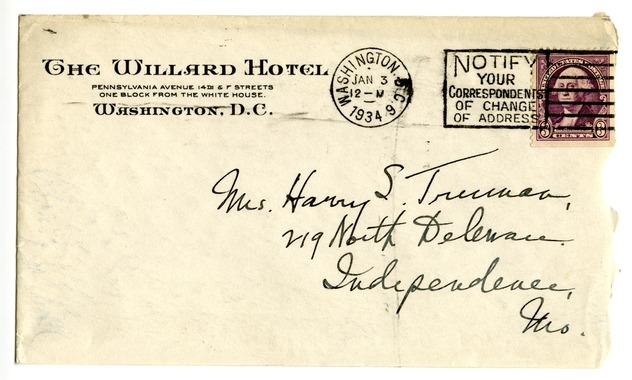 The Willard Hotel
PENNSYLVANIA AVENUE 14th & F STREETS
ONE BLOCK FROM THE WHITE HOUSE.
Washington, D.C.
WASHINGTON, D.C.
JAN 3
12-M
1934
9
NOTIFY
YOUR
CORRESPONDENTS
OF CHANGE
OF ADDRESS
3 CENTS 3
Mrs. Harry S. Truman,
219 North Delaware
Independence,
Mo.